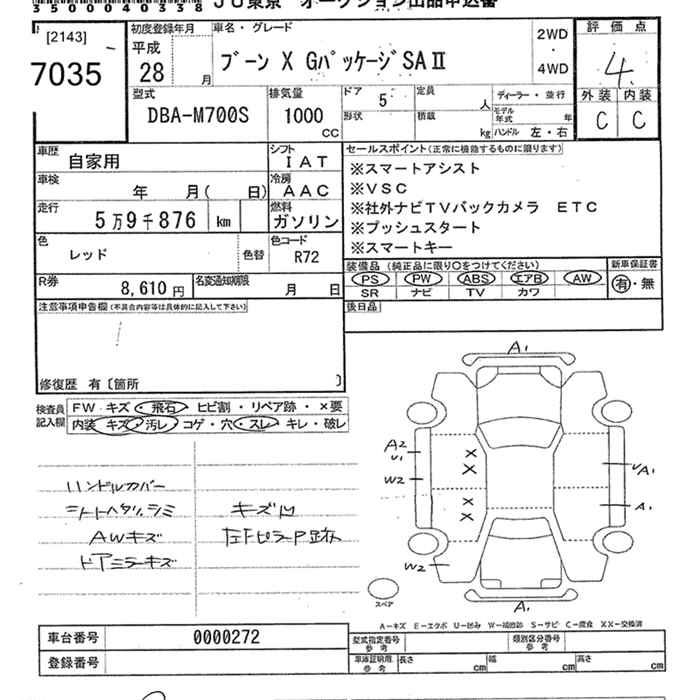 350004033８
ＪＵ東京 オークション出品申込書
[2143]
7035
初度登録年月
平成
28 月
車名・グレード
ブーン X Gパッケージ SAⅡ
2WD
・
4WD
評価点
4
外装 内装
C C
型式
DBA-M700S
排気量
1000 cc
ドア 5
形状
定員 人
積載 kg
ディーラー・並行
モデル年式 年
ハンドル 左・右
車歴 自家用
シフト IAT
車検 年 月( 日)
冷房 AAC
走行 5万9千876 km
燃料 ガソリン
色 レッド 色替
色コード R72
R券 8,610円
名変通知期限 月 日
セールスポイント(正常に機能するものに限ります)
※スマートアシスト
※VSC
※社外ナビTVバックカメラ ETC
※プッシュスタート
※スマートキー
装備品 (純正品に限り○をつけてください)
PS PW ABS エアB AW
SR ナビ TV カワ
新車保証書
有・無
後日品
注意事項申告欄(不具合内容等は具体的に記入して下さい)
修復歴 有〔箇所 〕
検査員記入欄
FW キズ・飛石・ヒビ割・リペア跡・×要
内装 キズ・汚レ・コゲ・穴・スレ・キレ・破レ
ハンドルカバー
シートヘタリ、シミ
AWキズ
ドアミラーキズ
キズ凹
A1
A2
U1
W2
×
×
×
×
UA1
A1
W2
A1
スペア
A－キズ E－エクボ U－凹み W－補修跡 S－サビ C－腐食 XX－交換済
車台番号 0000272
登録番号
型式指定番号 参考
類別区分番号 参考
車庫証明用 参考
長さ cm 幅 cm 高さ cm